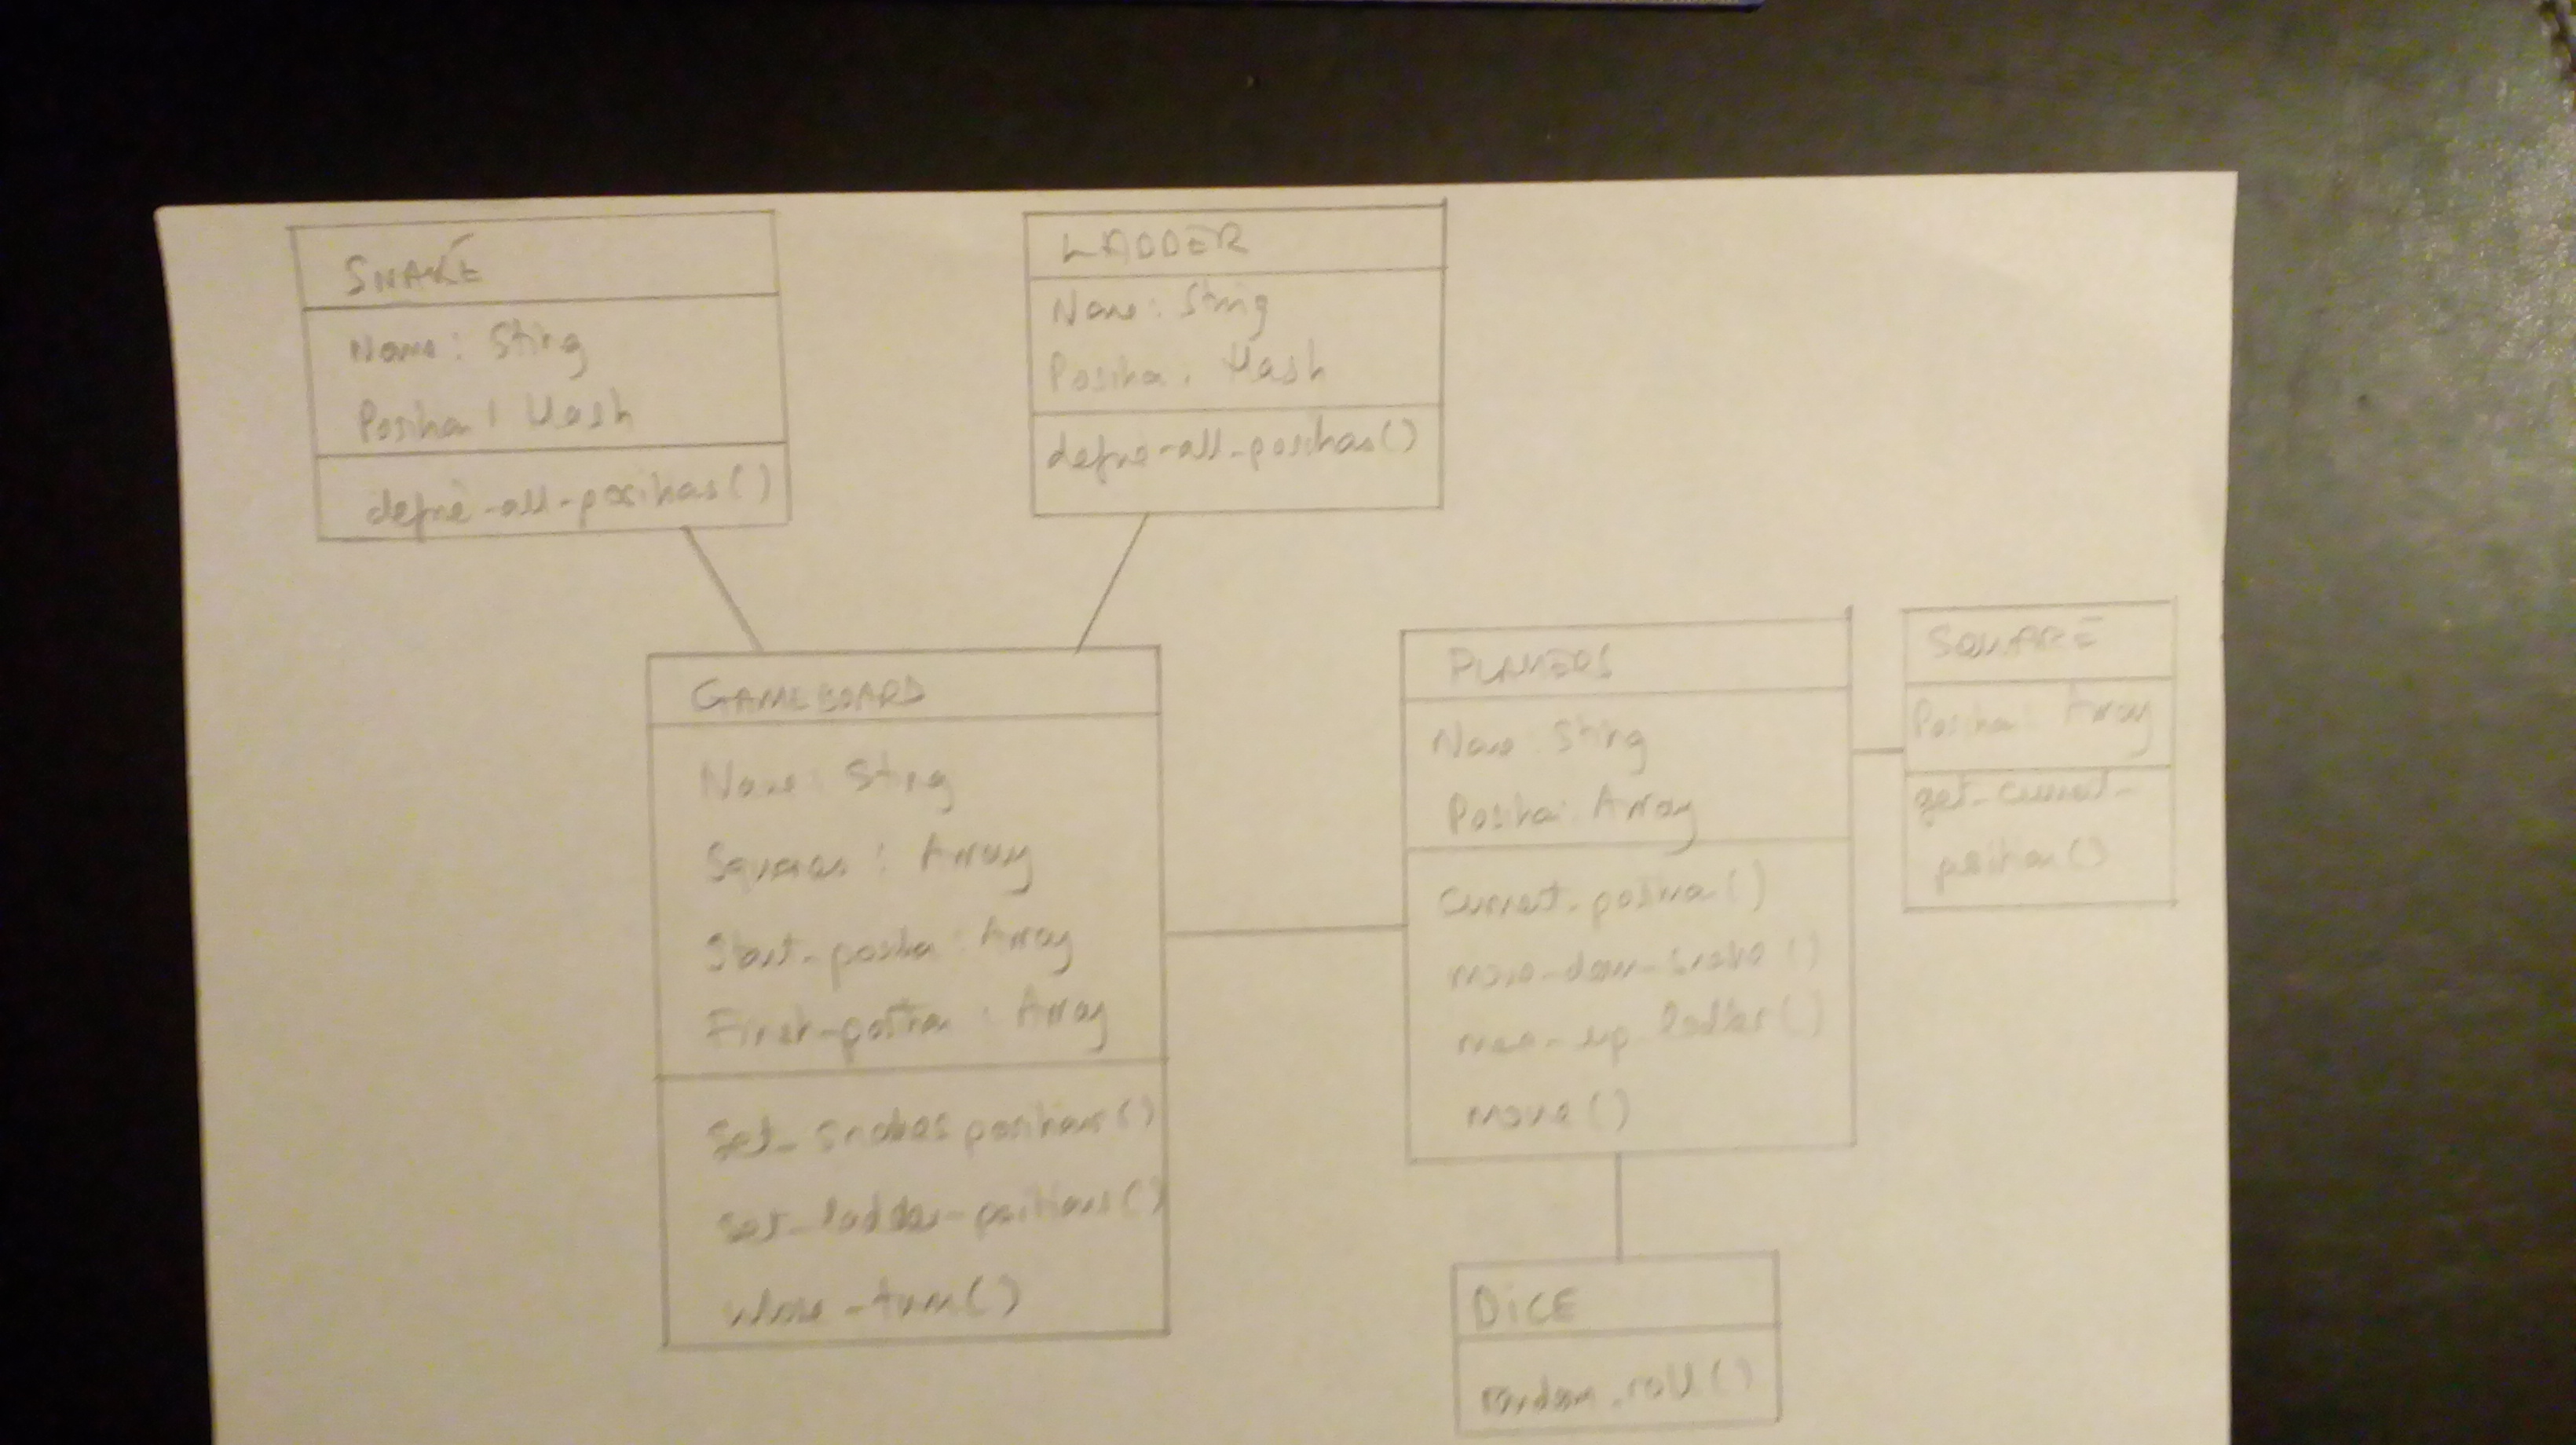 SNAKE
Name: String
Position: Hash
define-all-positions()
LADDER
Name: String
Position: Hash
define-all-positions()
GAMEBOARD
Name: String
Squares: Array
Start-position: Array
Finish-position: Array
set_snakes positions()
set_ladder-positions()
whose-turn()
PLAYERS
Name: String
Position: Array
current-position()
move-down-snake()
move-up-ladder()
move()
SQUARE
Position: Array
get-current-
position()
DICE
random.roll()